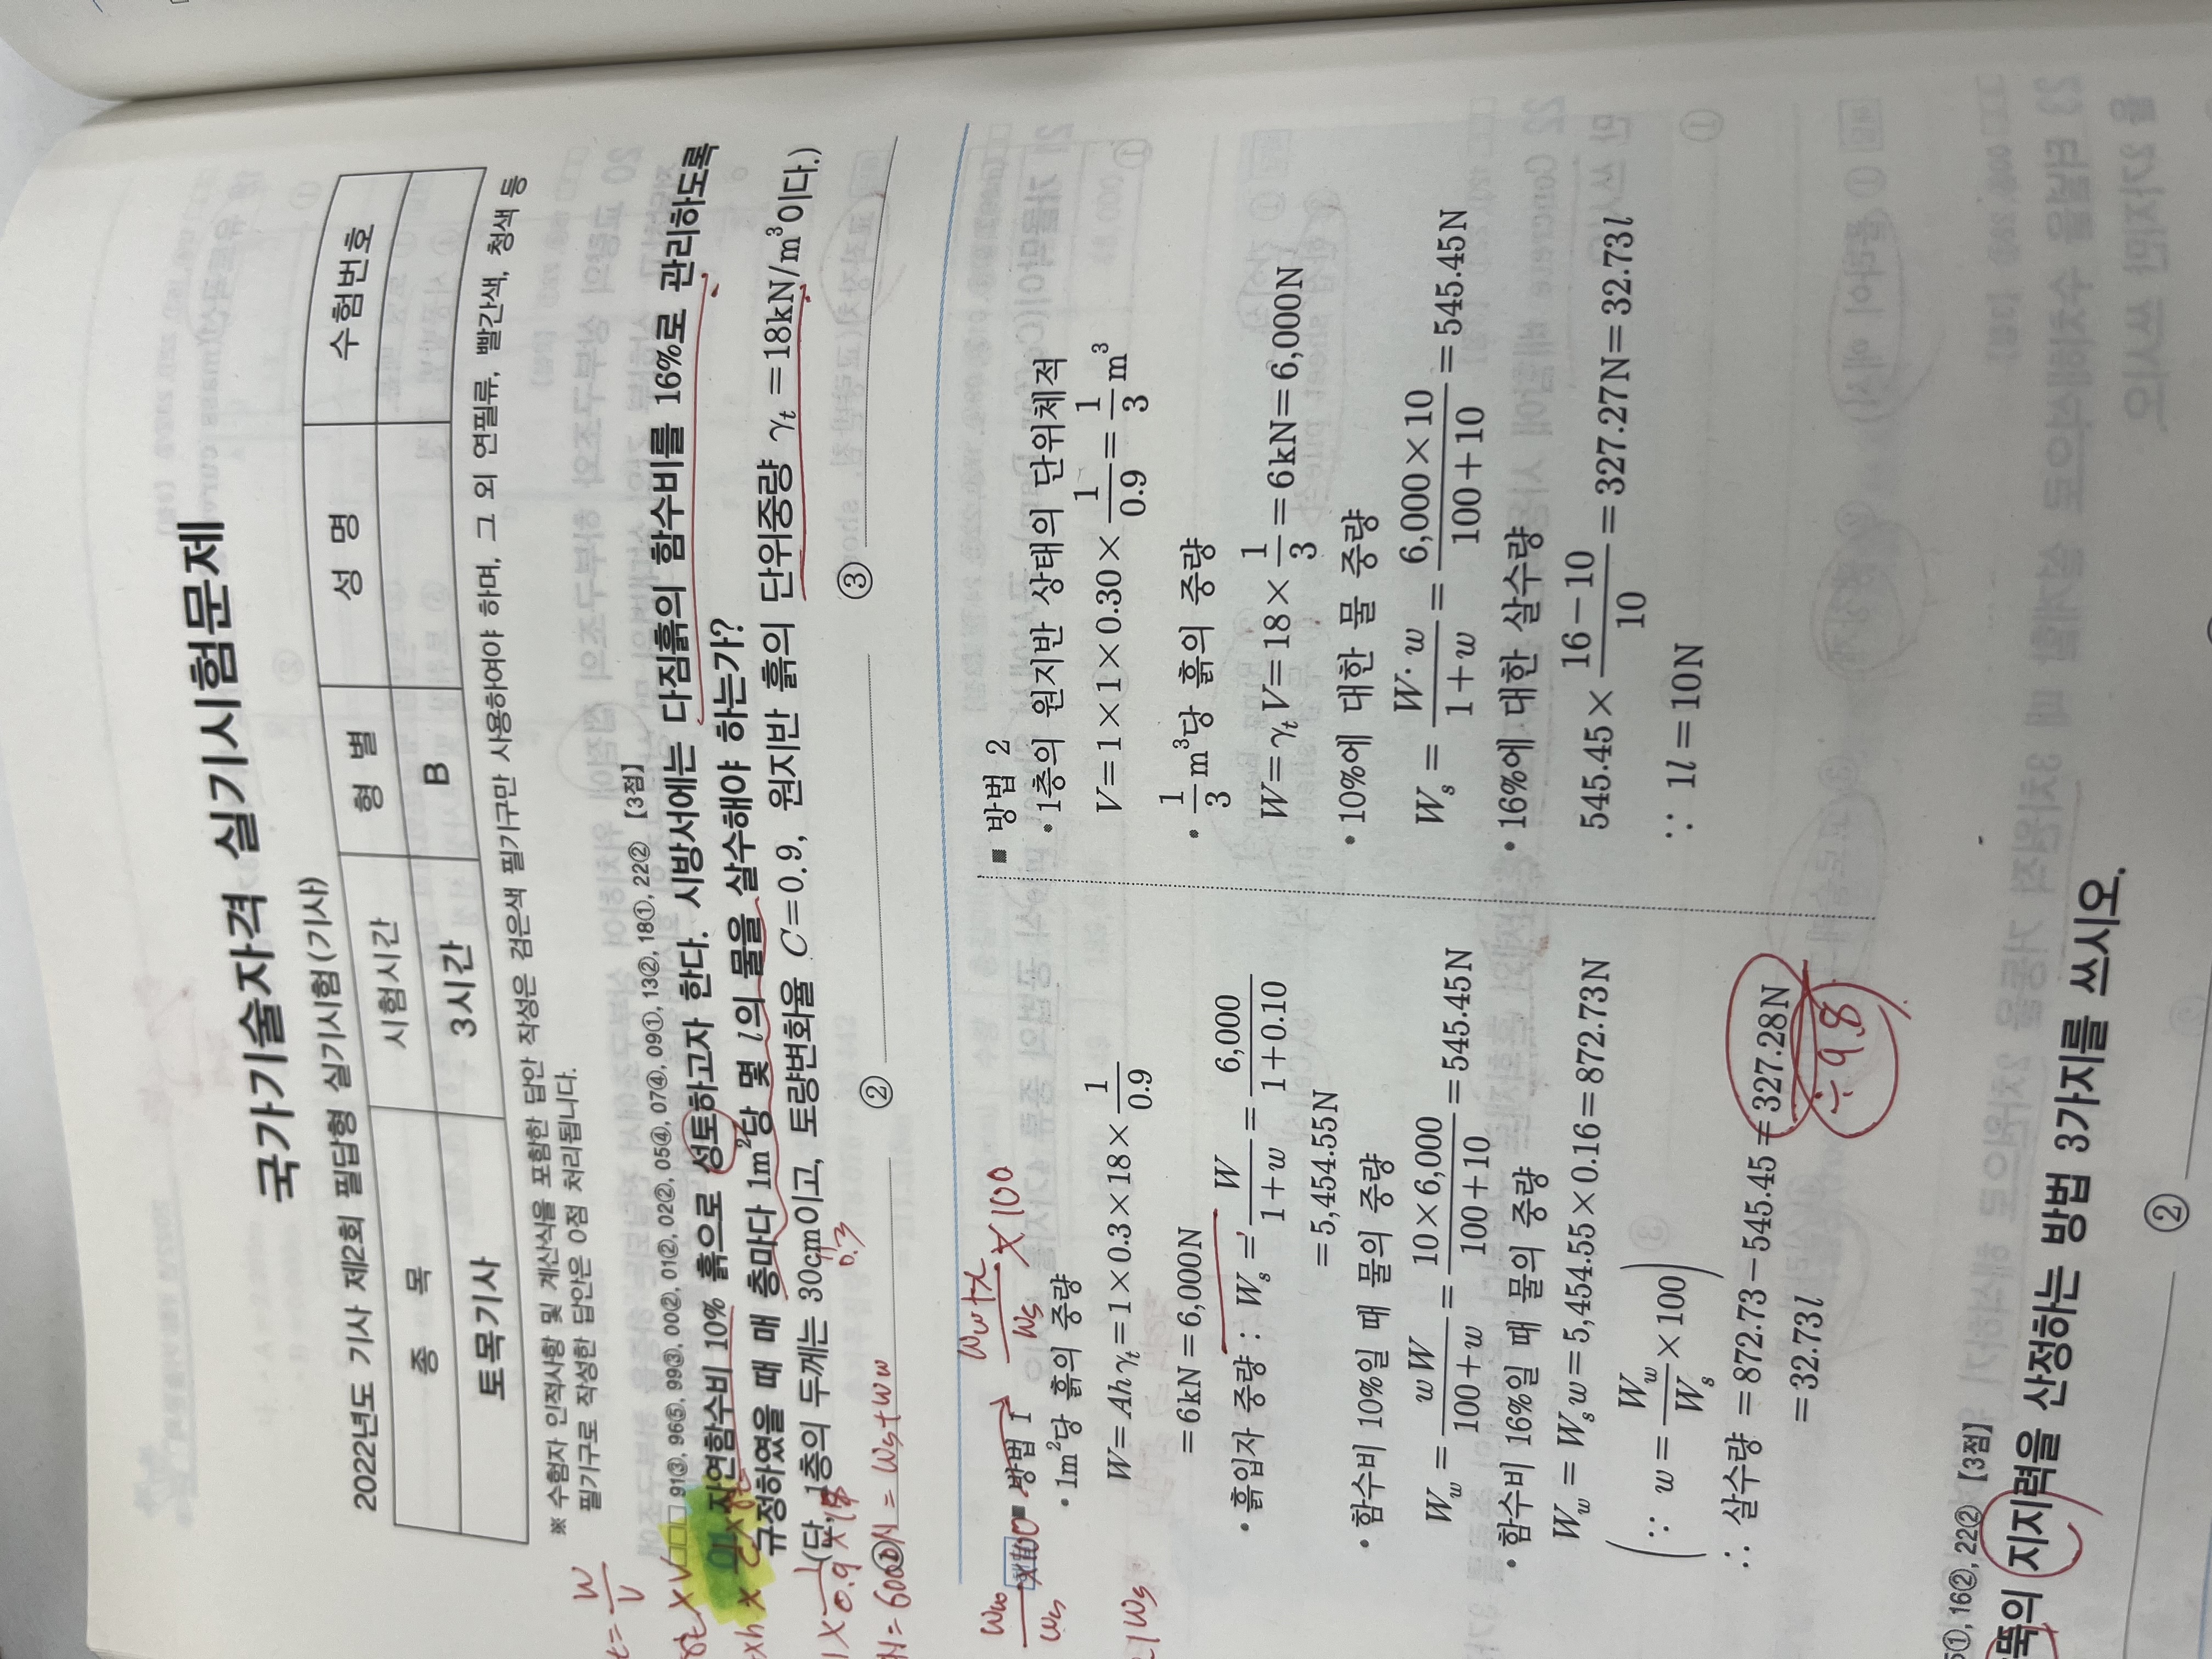 국가기술자격 실기시험문제
2022년도 기사 제2회 필답형 실기시험(기사)
종 목 시험시간 형 별 성 명 수험번호
토목기사 3시간 B
※ 수험자 인적사항 및 계산식을 포함한 답안 작성은 검은색 필기구만 사용하여야 하며, 그 외 연필류, 빨간색, 청색 등
필기구로 작성한 답안은 0점 처리됩니다.
91③, 96⑤, 99③, 00②, 01②, 02②, 05④, 07④, 09①, 13②, 18①, 22② 【3점】
01 자연함수비 10% 흙으로 성토하고자 한다. 시방서에는 다짐흙의 함수비를 16%로 관리하도록
규정하였을 때 매 층마다 1m²당 몇 l의 물을 살수해야 하는가?
(단, 1층의 두께는 30cm이고, 토량변화율 C=0.9, 원지반 흙의 단위중량 γt=18kN/m³이다.)
0.3
② ③
=Ws+Ww
Ww+x / Ws × 100
Ww / Ws ×100
■ 방법 1
• 1m²당 흙의 중량
W=Ahγt=1×0.3×18×1/0.9
=6kN=6,000N
• 흙입자 중량 : Ws=W/(1+w)=6,000/(1+0.10)
=5,454.55N
• 함수비 10%일 때 물의 중량
Ww=wW/(100+w)=10×6,000/(100+10)=545.45N
• 함수비 16%일 때 물의 중량
Ww=Ws w=5,454.55×0.16=872.73N
(∵ w=Ww/Ws×100)
∴ 살수량=872.73−545.45=327.28N
÷9.8
=32.73l
■ 방법 2
• 1층의 원지반 상태의 단위체적
V=1×1×0.30×1/0.9=1/3m³
• 1/3m³당 흙의 중량
W=γtV=18×1/3=6kN=6,000N
• 10%에 대한 물 중량
Ws=W·w/(1+w)=6,000×10/(100+10)=545.45N
• 16%에 대한 살수량
545.45×(16−10)/10=327.27N=32.73l
∵ 1l=10N
16②, 22② 【3점】
뚝의 지지력을 산정하는 방법 3가지를 쓰시오.
②